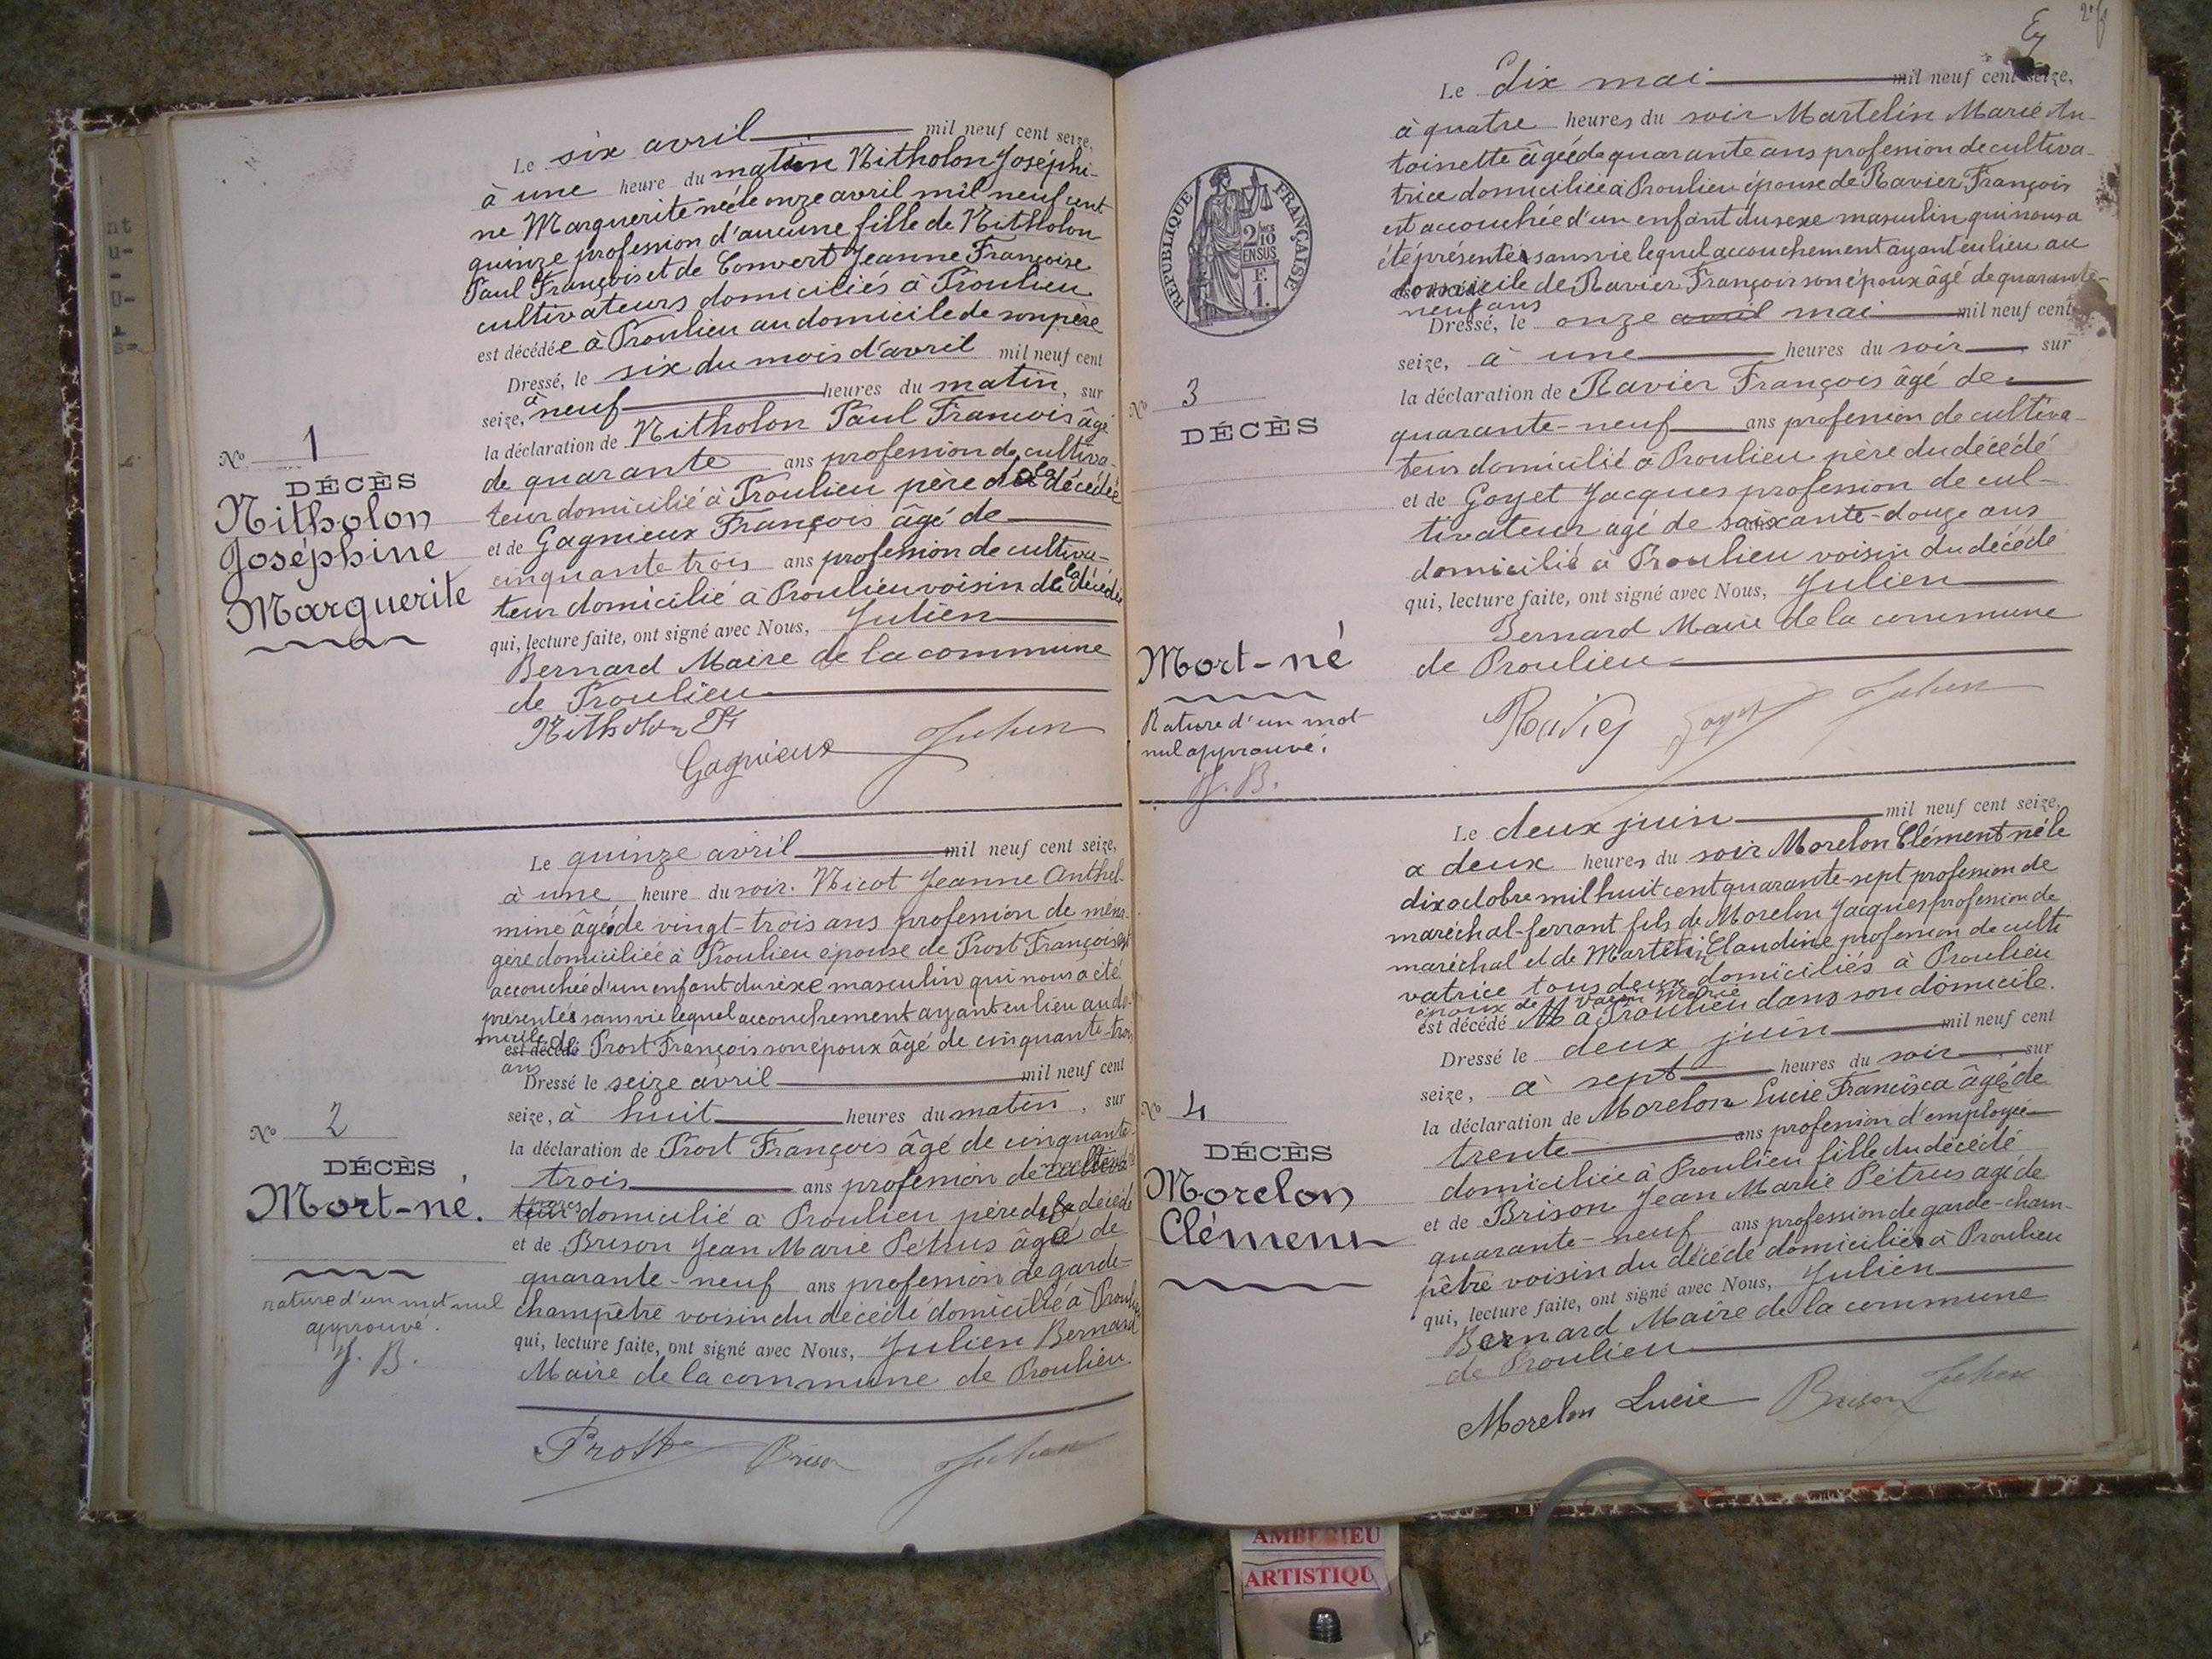 Le six avril mil neuf cent seize,
à une heure du matin Nitholon Joséphi-
ne Marguerite née le onze avril mil neuf cent
quinze profession d'aucune fille de Nitholon
Paul François et de Convert Jeanne Françoise
cultivateurs domiciliés à Proulieu
est décédée à Proulieu au domicile de son père
Dressé, le six du mois d'avril mil neuf cent
seize, à neuf heures du matin, sur
la déclaration de Nitholon Paul François âgé
de quarante ans profession de cultiva-
teur domicilié à Proulieu père de la décédée
et de Gagnieux François âgé de
cinquante trois ans profession de cultiva-
teur domicilié à Proulieu voisin de la décédée
qui, lecture faite, ont signé avec Nous, Julien
Bernard Maire de la commune
de Proulieu
Nitholon
Gagnieux Julien
No 1
DÉCÈS
Nitholon
Joséphine
Marguerite
Le quinze avril mil neuf cent seize,
à une heure du soir. Nicot Jeanne Anthel-
mine âgée de vingt-trois ans profession de ména-
gère domiciliée à Proulieu épouse de Prost François est
accouchée d'un enfant du sexe masculin qui nous a été
présenté sans vie lequel accouchement ayant eu lieu au do-
micile de
est décédé Prost François son époux âgé de cinquante-trois
ans
Dressé le seize avril mil neuf cent
seize, à huit heures du matin, sur
la déclaration de Prost François âgé de cinquante
trois ans profession de
domicilié à Proulieu père du décédé
et de Brison Jean Marie Pétrus âgé de
quarante-neuf ans profession de garde-
champêtre voisin du décédé domicilié à Proulieu
qui, lecture faite, ont signé avec Nous, Julien Bernard
Maire de la commune de Proulieu.
Prost Brison Julien
No 2
DÉCÈS
Mort-né.
rature d'un mot nul
approuvé.
J. B.
Le dix mai mil neuf cent seize,
à quatre heures du soir Martelin Marie An-
toinette âgée de quarante ans profession de cultiva-
trice domiciliée à Proulieu épouse de Ravier François
est accouchée d'un enfant du sexe masculin qui nous a
été présenté sans vie lequel accouchement ayant eu lieu au
domicile de Ravier François son époux âgé de quarante-
neuf ans
Dressé, le onze avril mai mil neuf cent
seize, à une heures du soir, sur
la déclaration de Ravier François âgé de
quarante-neuf ans profession de cultiva-
teur domicilié à Proulieu père du décédé
et de Goyet Jacques profession de cul-
tivateur agé de soixante-douze ans
domicilié à Proulieu voisin du décédé
qui, lecture faite, ont signé avec Nous, Julien
Bernard Maire de la commune
de Proulieu
Ravier Goyet Julien
RÉPUBLIQUE FRANÇAISE
2/10
EN SUS
F.
1.
No 3
DÉCÈS
Mort-né
Rature d'un mot
nul approuvé.
J. B.
Le deux juin mil neuf cent seize,
a deux heures du soir Morelon Clément né le
dix octobre mil huit cent quarante-sept profession de
maréchal-ferrant fils de Morelon Jacques profession de
maréchal et de Martelin Claudine profession de culti
vatrice tous deux domiciliés à Proulieu
époux de Marie
est décédé à Proulieu dans son domicile.
Dressé le deux juin mil neuf cent
seize, à sept heures du soir, sur
la déclaration de Morelon Lucie Francisca âgée de
trente ans profession d'employée
domiciliée à Proulieu fille du décédé
et de Brison Jean Marie Pétrus agé de
quarante-neuf ans profession de garde-cham-
pêtre voisin du décédé domicilié à Proulieu
qui, lecture faite, ont signé avec Nous, Julien
Bernard Maire de la commune
de Proulieu
Morelon Lucie Brison Julien
No 4
DÉCÈS
Morelon
Clément
AMBERIEU
ARTISTIQU